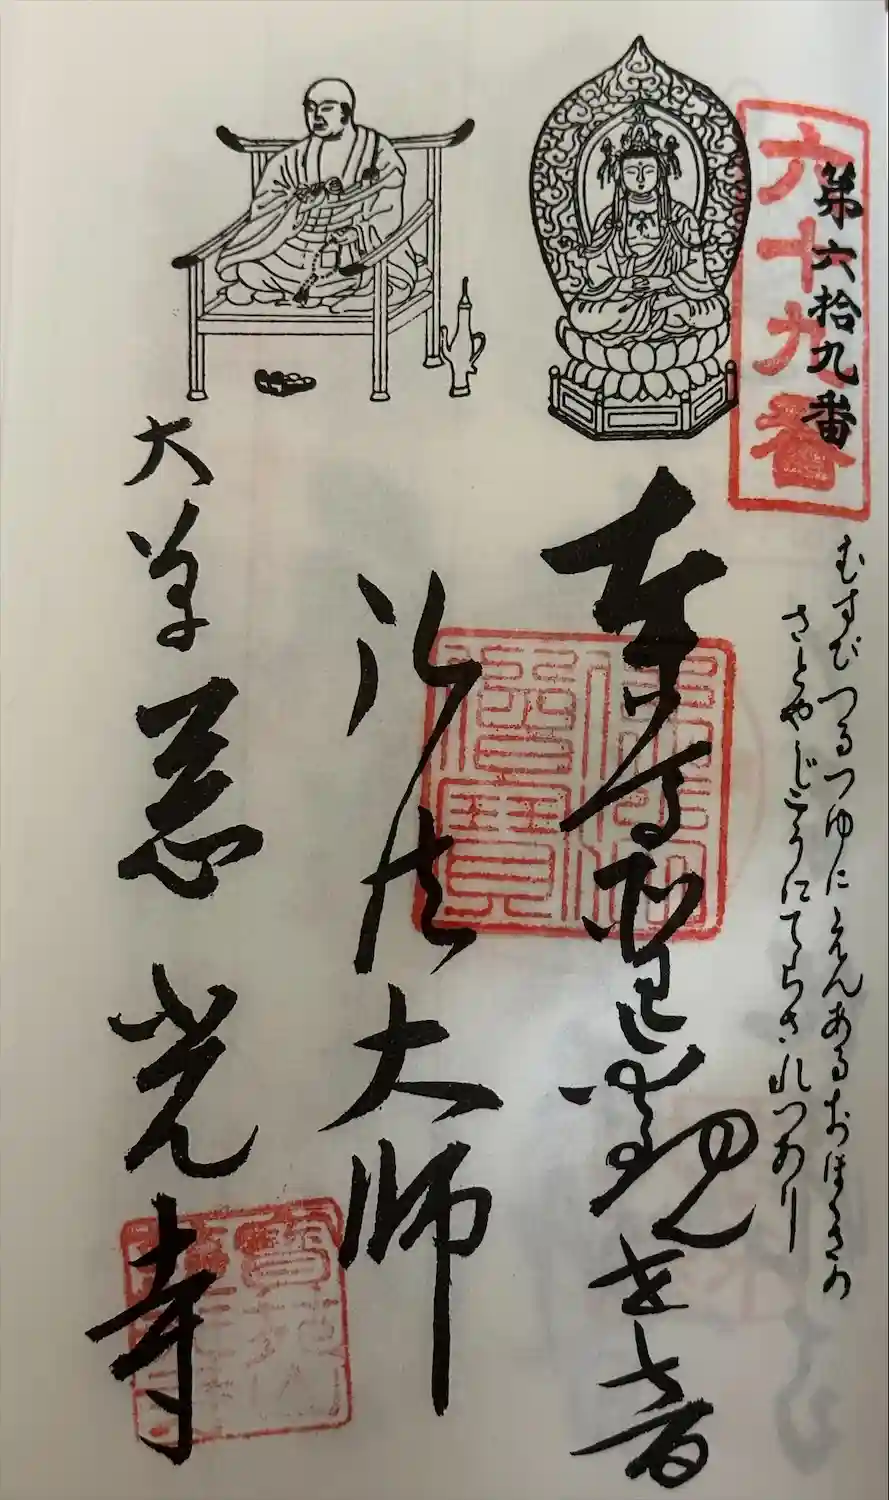 六十九番
第六拾九番
むすびつるつゆにえんあるおほくさの
さとやじこうにてらされつあり
聖観世音
弘法大師
佛法僧寶
大草慈光寺